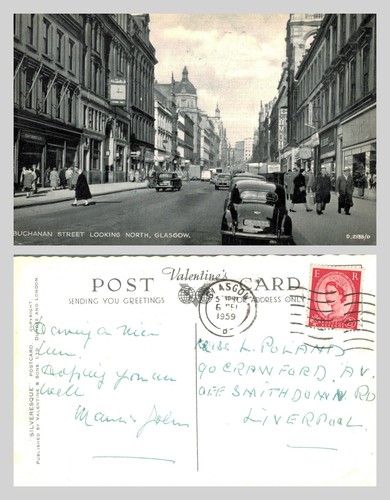 BUCHANAN STREET LOOKING NORTH, GLASGOW.
POST Valentine's CARD
SENDING YOU GREETINGS
FOR ADDRESS ONLY
"SILVERESQUE" POSTCARD. COPYRIGHT.
PUBLISHED BY VALENTINE & SONS LTD. DUNDEE AND LONDON.
GLASGOW
1959
E R
Having a nice
time.
Hoping you are
well
Mam & John
Miss L. POLAND
90 CRAWFORD. AV.
OFF SMITHDOWN RD
LIVERPOOL.